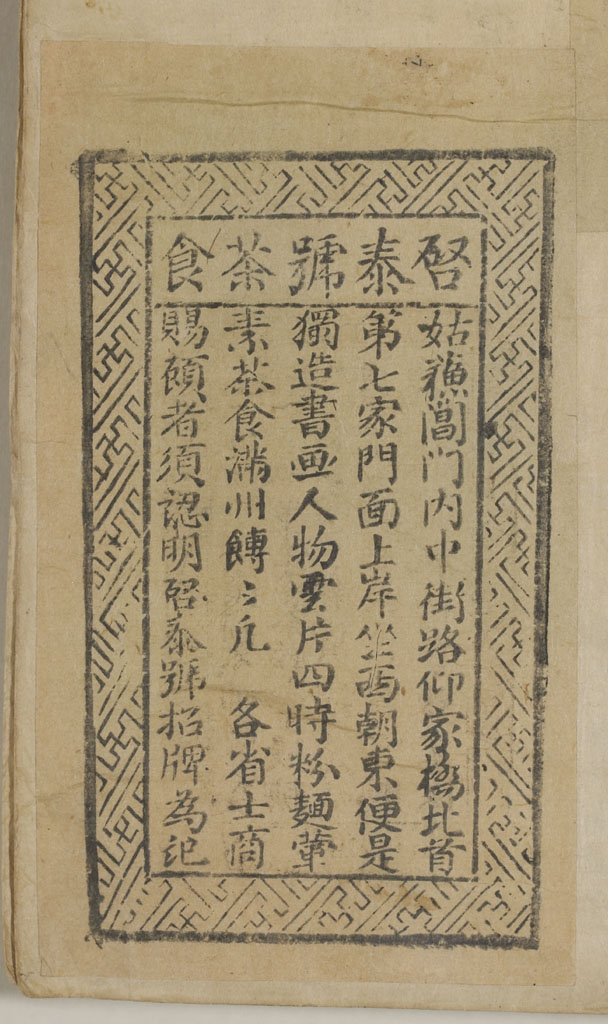 啓泰號茶食
姑蘓閶門內中街路仰家橋北首
第七家門面上岸坐西朝東便是
獨造書画人物雲片四時粉麵葷
素茶食滿州餑〻凢 各省士商
賜顧者須認明啓泰號招牌為記